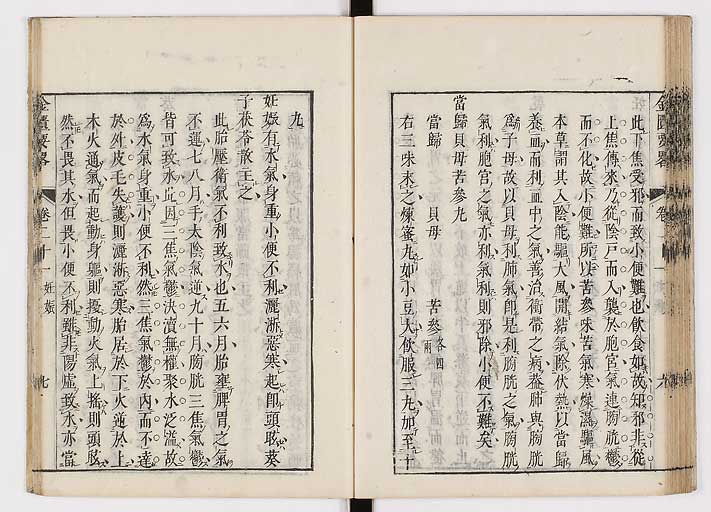 此下焦受邪而致小便難也飲食如故知邪非從
上焦傳來乃從陰戸而入襲於胞宮氣連膀胱鬱
而不化故小便難所以苦參味苦氣寒燥濕驅風
本草謂其入陰能驅大風開結氣除伏熱以當歸
養血而利血中之氣善治衝帶之病葢肺與膀胱
爲子母故以貝母利肺氣即是利膀胱之氣膀胱
氣利胞宮之氣亦利氣利則邪除小便不難矣
當歸貝母苦參丸
當歸 貝母 苦參各四兩
右三味末之煉蜜丸如小豆大飲服三丸加至十
九
妊娠有水氣身重小便不利灑淅惡寒起即頭眩葵
子茯苓散主之
此胎壓衛氣不利致水也五六月胎壅脾胃之氣
不運七八月手太陰氣逆九十月膀胱三焦氣鬱
皆可致水此因三焦氣鬱決瀆無權聚水泛溢故
爲水氣身重小便不利然三焦氣鬱於內而不達
於外皮毛失護則灑淅惡寒胎居於下火逆於上
木火通氣而起動身軀則擾動火氣上搖則頭眩
然不畏其水但畏小便不利雖非陽虛致水亦當
金匱要略
卷二十一 妊娠
七